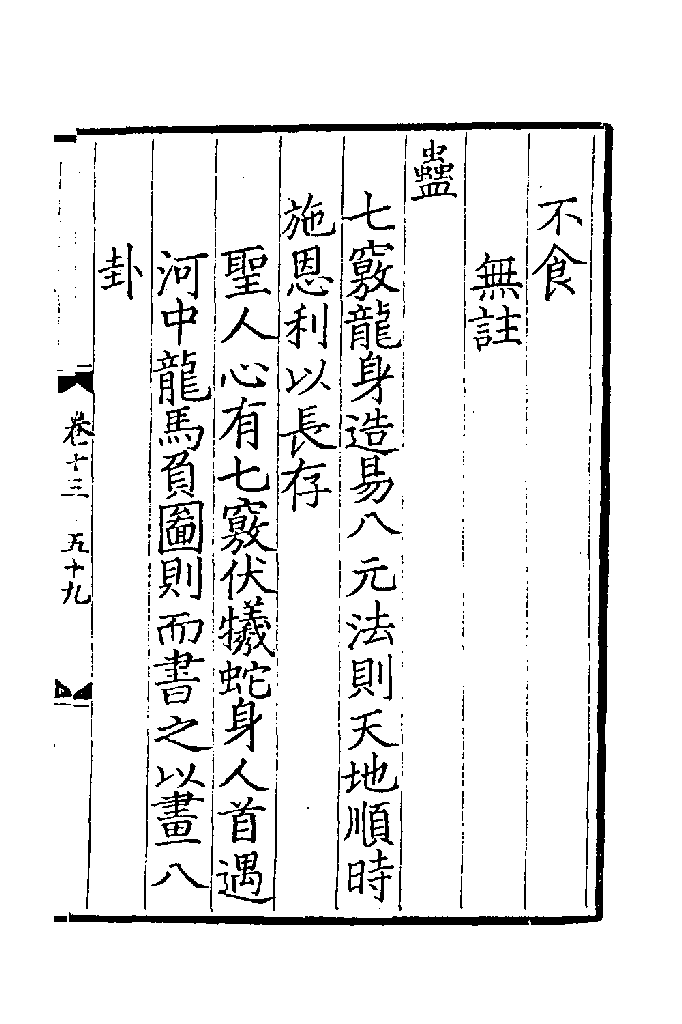 不食
無註
蠱
七竅龍身造易八元法則天地順時
施恩利以長存
聖人心有七竅伏犧蛇身人首遇
河中龍馬負圖則而書之以畫八
卦
卷十三 五十九